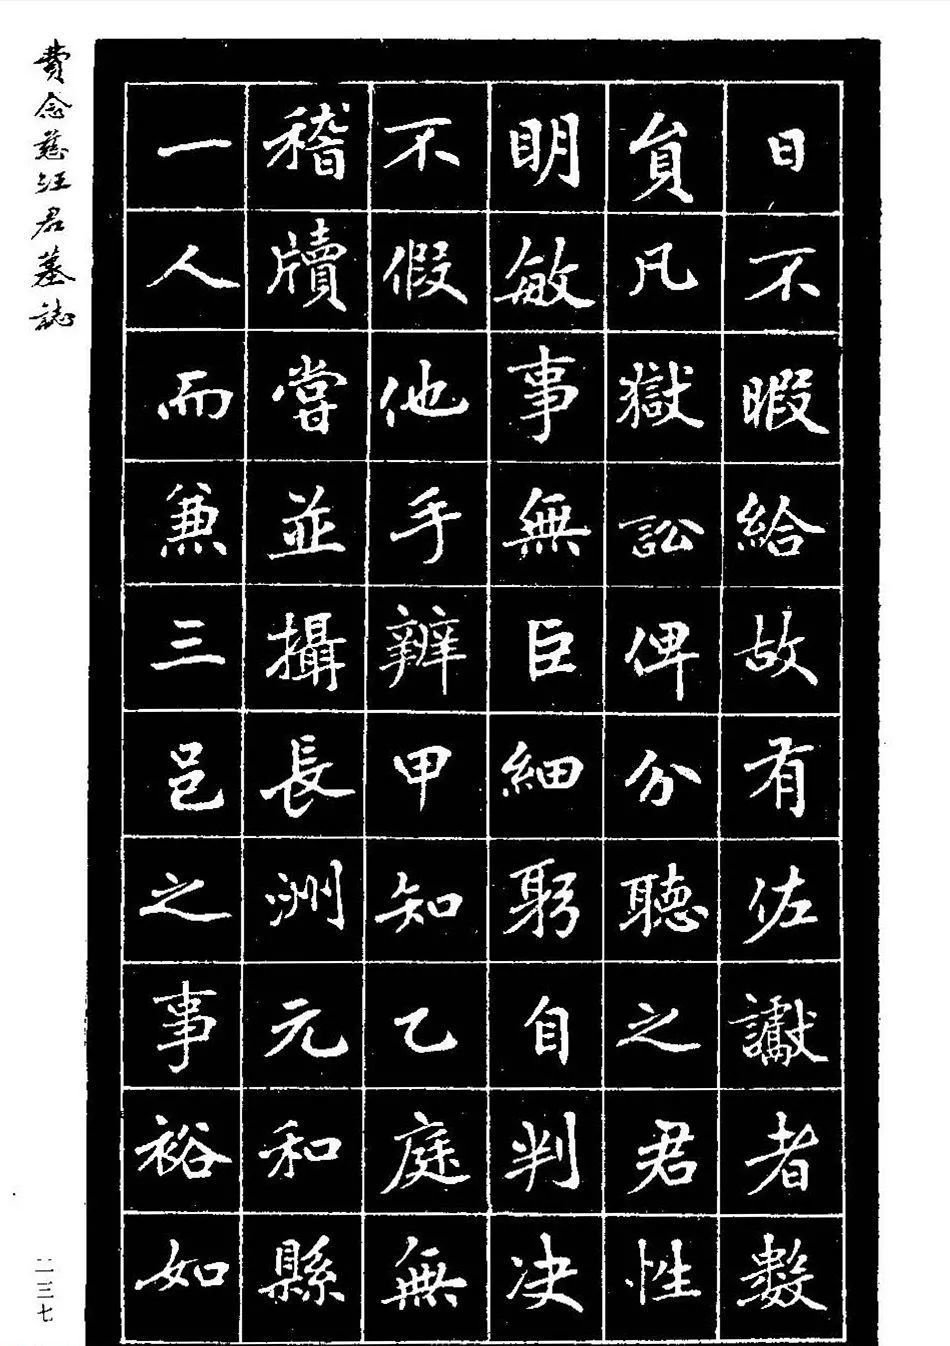 日不暇給故有佐讞者數
員凡獄訟俾分聽之君性
明敏事無巨細躬自判決
不假他手辨甲知乙庭無
稽牘嘗並攝長洲元和縣
一人而兼三邑之事裕如
費念慈汪君墓誌
二三七